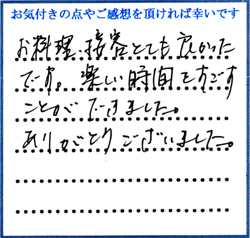 お気付きの点やご感想を頂ければ幸いです
お料理・接客とても良かった
です。楽しい時間をすごす
ことができました。
ありがとうございました。